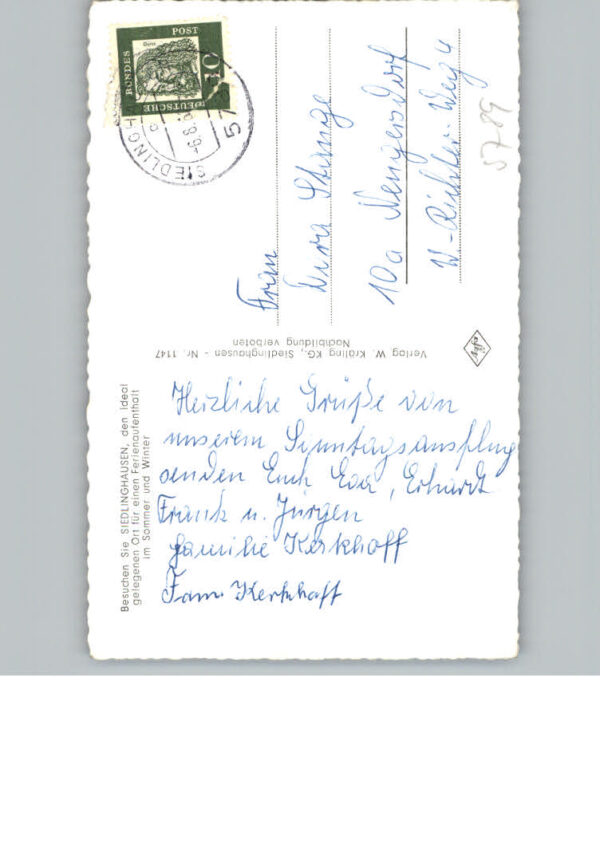 BUNDES
POST
Dürer
10
DEUTSCHE
SIEDLINGH
57
-9.8.
a
57-89
Frau
Dora Stange
10a Neugersdorf
W-Richter-Weg 4
Verlag W. Kräling KG., Siedlinghausen - Nr. 1147
Nachbildung verboten
efka
Besuchen Sie SIEDLINGHAUSEN, den ideal
gelegenen Ort für einen Ferienaufenthalt
im Sommer und Winter
Herzliche Grüße von
unserem Sonntagsausflug
senden Euch Eva, Erhardt
Frank u. Jürgen
Familie Kerkhoff
Fam. Kerkhoff